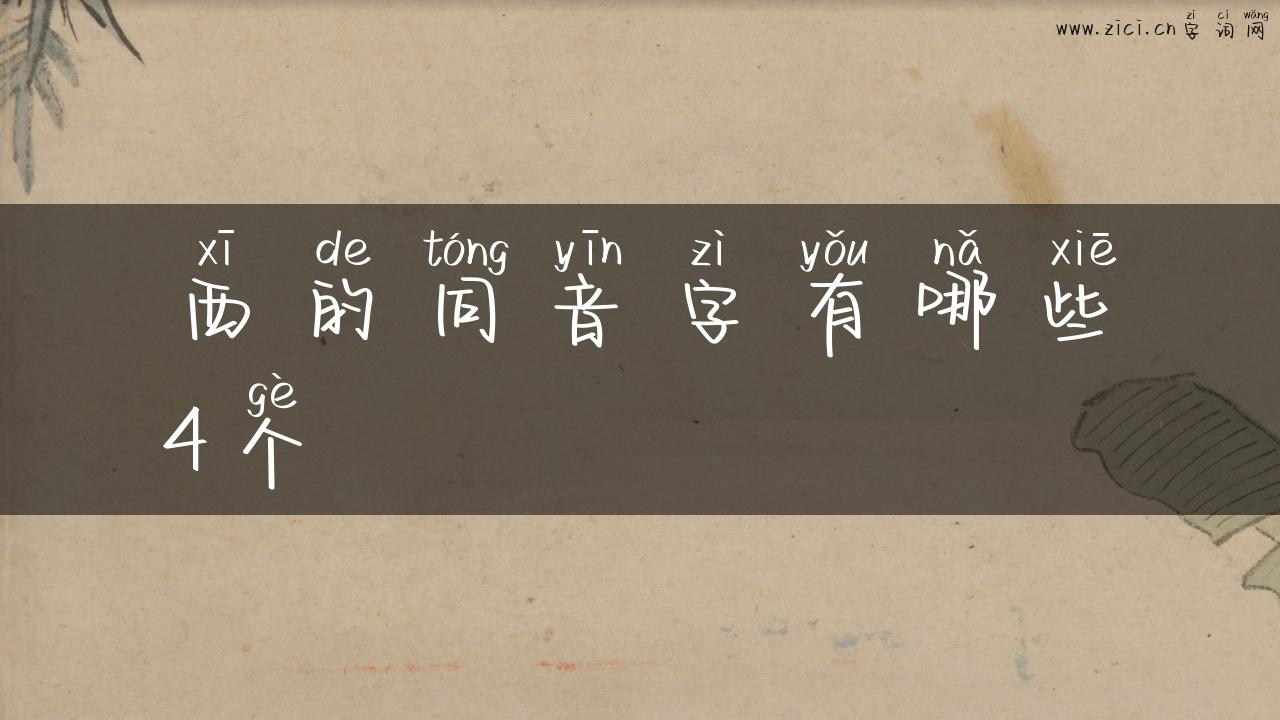 zì cí wǎng
www.zici.cn 字词网
xī de tóng yīn zì yǒu nǎ xiē
西的同音字有哪些
gè
4个